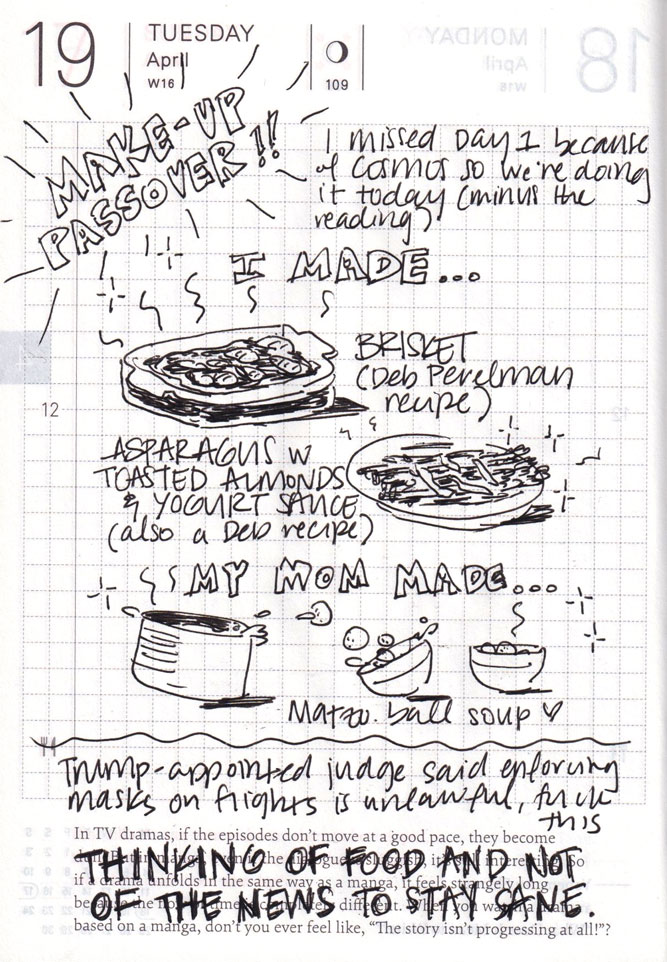 19
TUESDAY
April
W16
109
MONDAY
April
W16
18
MAKE-UP
PASSOVER!!
I missed Day 1 because
of Cosmos so we're doing
it today (minus the
reading)
I MADE...
BRISKET
(Deb Perelman
recipe)
12
ASPARAGUS W
TOASTED ALMONDS
& YOGURT SAUCE
(also a Deb recipe)
MY MOM MADE...
Matzo ball soup ♡
Trump-appointed judge said enforcing
masks on flights is unlawful, fuck
this
In TV dramas, if the episodes don't move at a good pace, they become
dull. But in manga, even if the dialogue is sluggish, it's still interesting. So
THINKING OF FOOD AND NOT
if a drama unfolds in the same way as a manga, it feels strangely long
because the flow of time is completely different. When you watch a drama
OF THE NEWS TO STAY SANE.
based on a manga, don't you ever feel like, "The story isn't progressing at all!"?